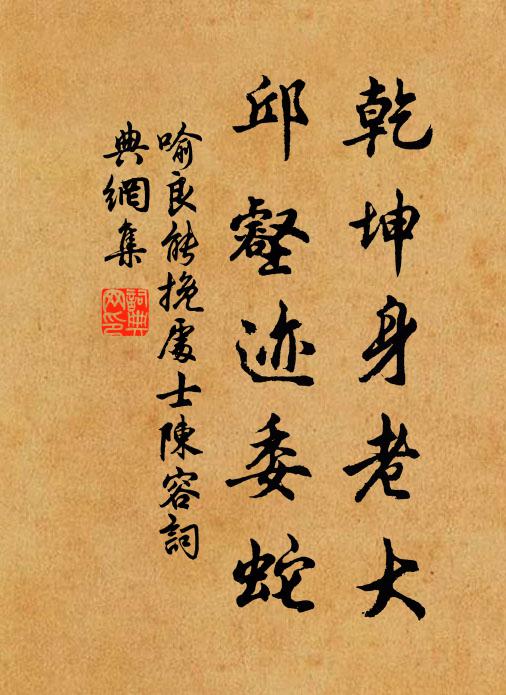 乾坤身老大
邱壑迹委蛇
喻良能挽處士陳容詞
典網集
詞典網印